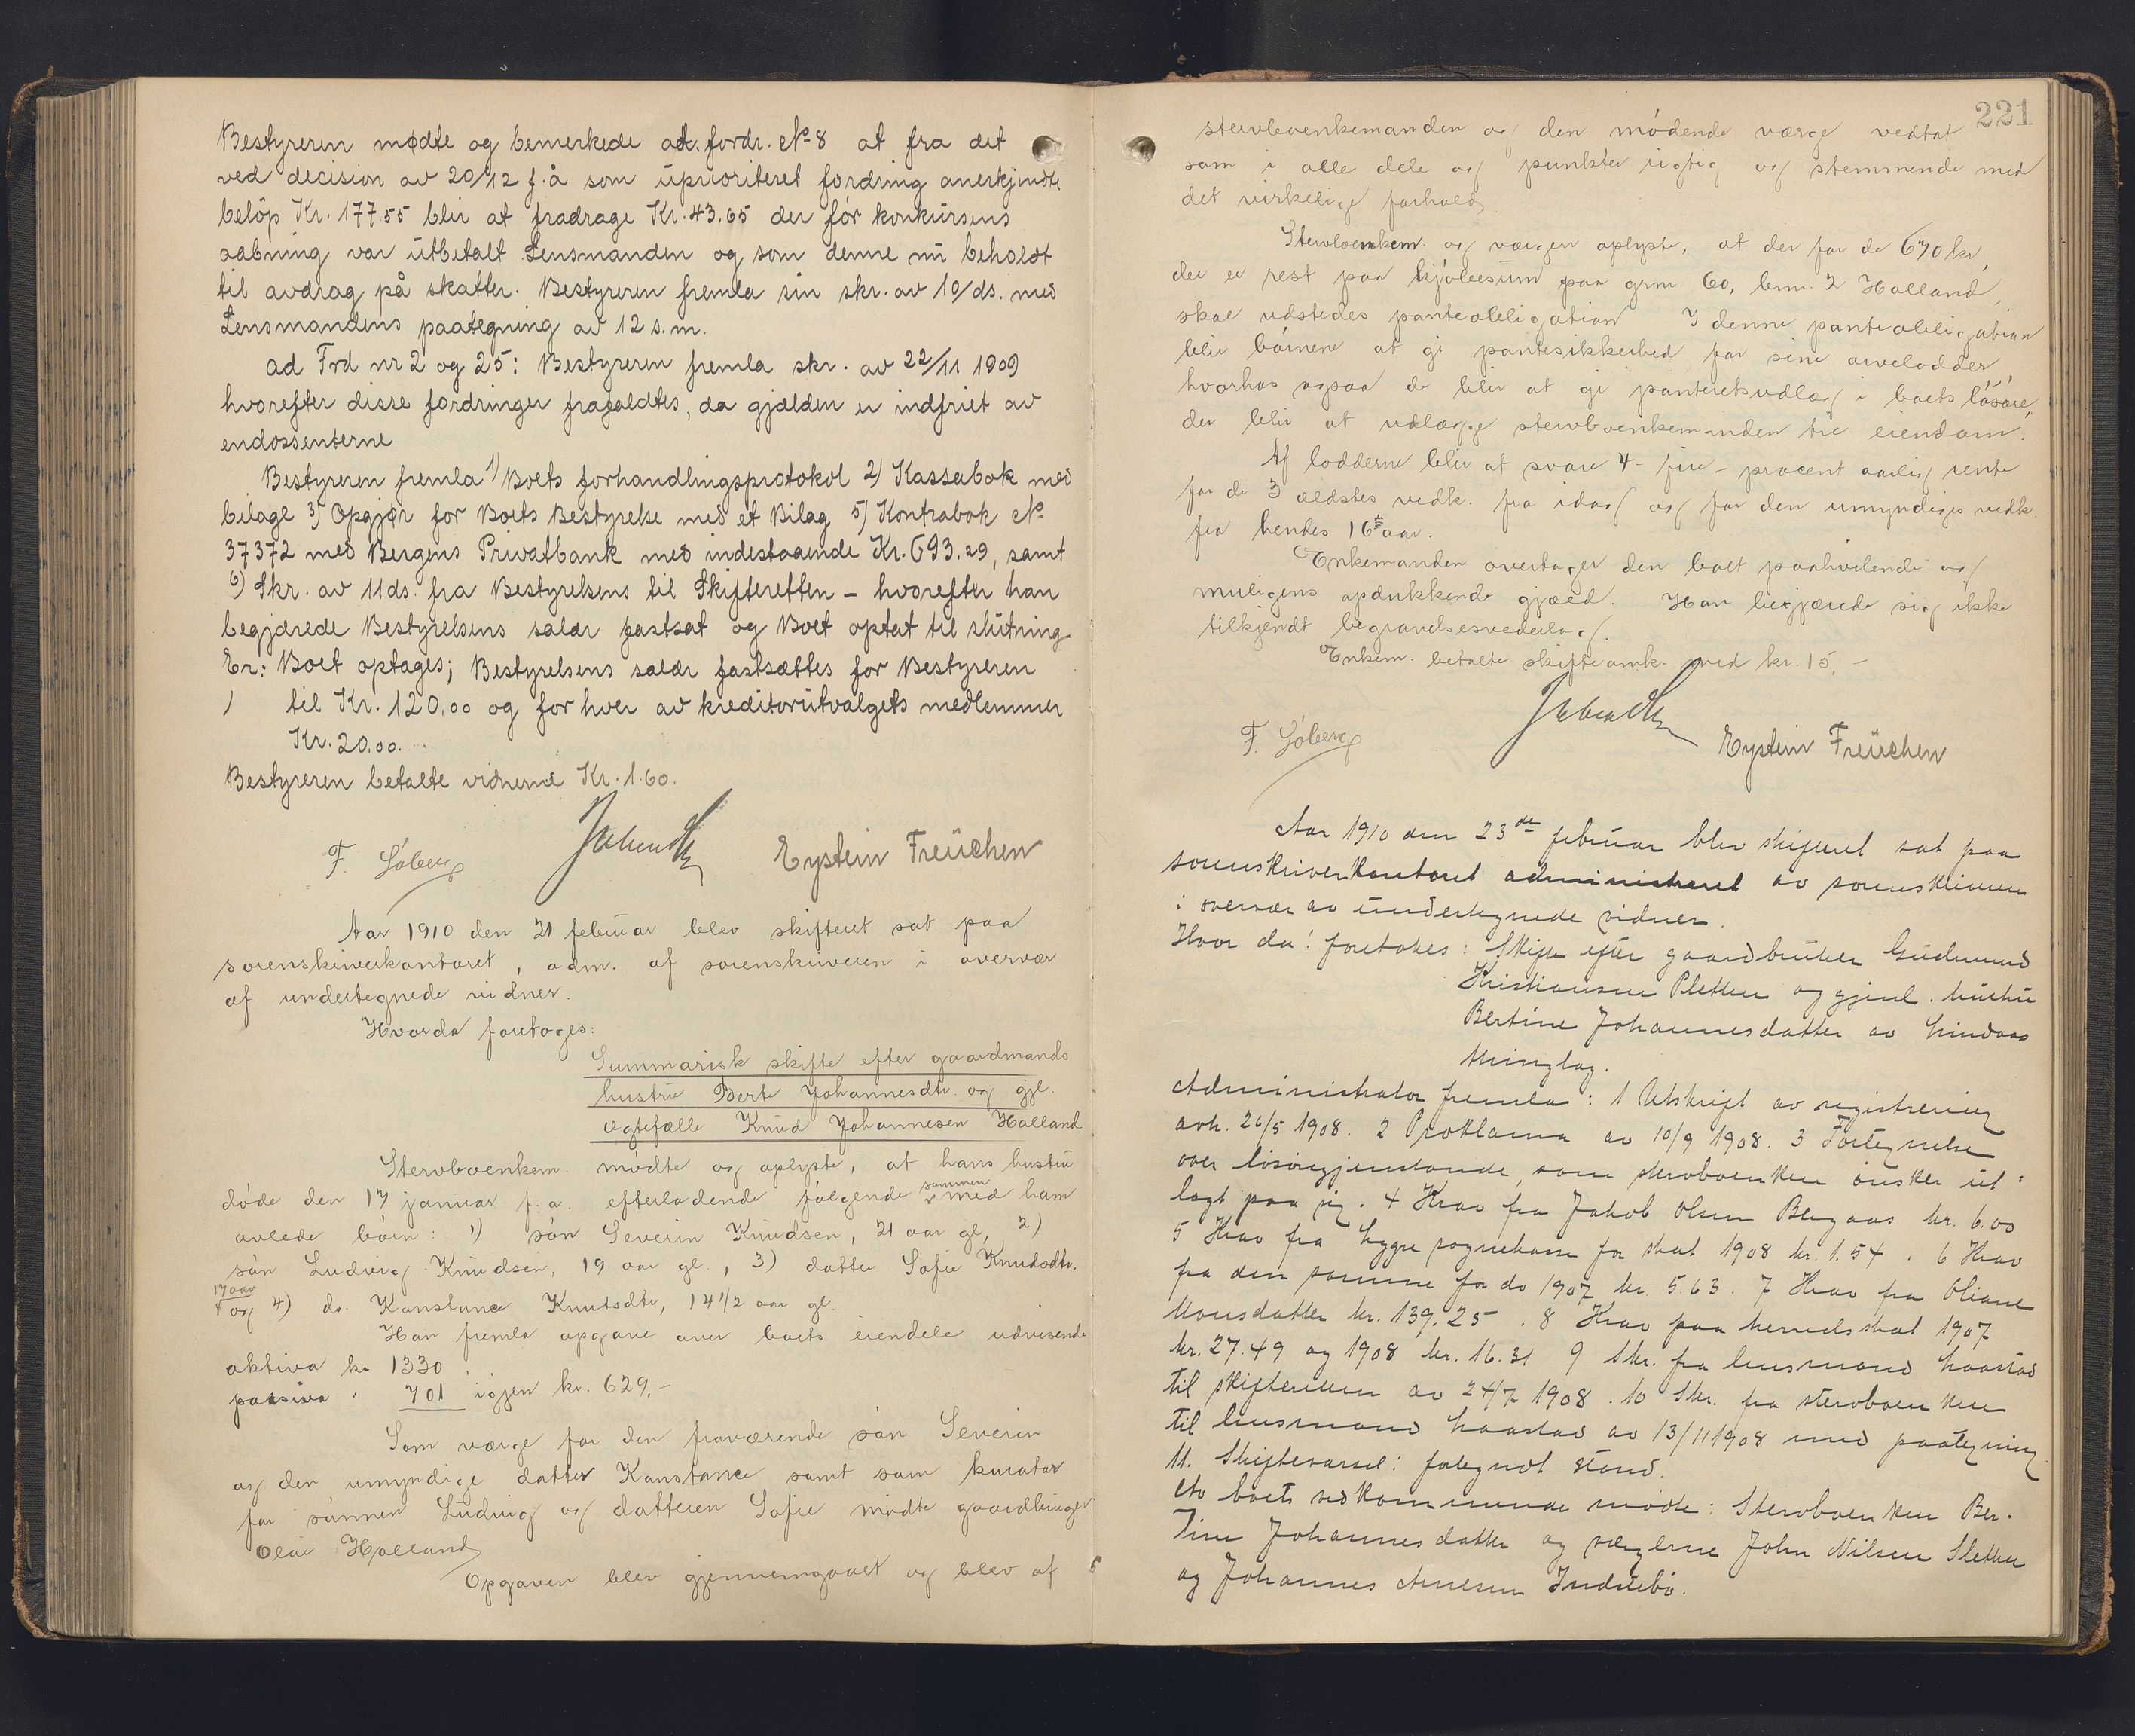 Bestyreren mødte og bemerkede ad. fordr. No 8 at fra det
ved decision av 20/12 f. å som uprioriteret fordring anerkjendte
beløp Kr. 177.55 blir at fradrage Kr. 43.65 der før konkursens
aabning var utbetalt Lensmanden og som denne nu beholdt
til avdrag på skatter. Bestyreren fremla sin skr. av 10/ds. med
Lensmandens paategning av 12 s.m.
ad Frd nr 2 og 25: Bestyreren fremla skr. av 22/11 1909
hvorefter disse fordringer frafaldtes, da gjælden er indfriet av
endossenterne
Bestyreren fremla 1) Boets forhandlingsprotokol 2) Kassabok med
bilage 3) Opgjør for Boets Bestyrelse med et Bilag 5) Kontrabok No
37372 med Bergens Privatbank med indestaaende Kr. 693.29, samt
6) Skr. av 11 ds. fra Bestyrelsens til Skifteretten – hvorefter han
begjærede Bestyrelsens salær fastsat og Boet optat til slutning
Er: Boet optages; Bestyrelsens salær fastsættes for Bestyreren
til Kr. 120.00 og for hver av kreditorutvalgets medlemmer
Kr. 20.00.
Bestyreren betalte vidnerne Kr. 1.60.
F. Søberg Eystein Freüchen
Aar 1910 den 21 februar blev skifteret sat paa
sorenskriverkontoret, adm. af sorenskriveren i overvær
af undertegnede vidner.
Hvorda foretoges:
Summarisk skifte efter gaardmands
hustru Berte Johannesdtr. og gjl.
ægtefælle Knud Johannesen Halland
Stervboenkem. mødte og oplyste, at hans hustru
døde den 17 januar f. a. efterladende følgende sammen med ham
avlede børn: 1) søn Severin Knudsen, 21 aar gl, 2)
søn Ludvig Knudsen, 19 aar gl., 3) datter Sofie Knutsdtr.
17 aar og 4) do. Konstance Knutsdtr, 14 1/2 aar gl.
Han fremla opgave over boets eiendele udvisende
aktiva kr 1330
passiva " 701 igjen kr. 629,-
Som værge for den fraværende søn Severin
og den umyndige datter Konstance samt som kurator
for sønnen Ludvig og datteren Sofie mødte gaardbruger
Olai Halland
Opgaven blev gjennemgaaet og blev af
221
stervboenkemanden og den mødende værge vedtat
som i alle dele og punkter rigtig og stemmende med
det virkelige forhold
Stervboenkem. og værgen oplyste, at der for de 670 kr,
der er rest paa kjøbesum paa grnr. 60, brnr. 2 Halland,
skal udstedes panteobligation I denne panteobligation
blir børnene at gi pantesikkerhed for sine arvelodder,
hvorhos ogsaa de blir at gi panteretsudlæg i boets løsøre,
der blir at udlægge stervboenkemanden til eiendom.
Af lodderne blir at svare 4 - fire - procent aarlig rente
for de 3 ældstes vedk. fra idag og for den umyndiges vedk.
fra hendes 16de aar.
Enkemanden overtager den boet paahvilende og
muligens opdukkende gjæld. Han begjærede sig ikke
tilkjendt begravelsesvederlag.
Enkem. betalte skifteomk. med kr. 15,-
F. Søberg Eystein Freüchen
Aar 1910 den 23de februar blev skifteret sat paa
sorenskriverkontoret administreret av sorenskriveren
i overvær av undertegnede vidner.
Hvor da: foretokes: Skifte efter gaardbruker Gudmund
Kristiansen Sletten og gjenl. hustru
Bertine Johannesdatter av Lindaas
thinglag.
Administrator fremla: 1 Utskrift av registrering
avh. 26/5 1908. 2 Proklama av 10/9 1908. 3 Fortegnelse
over løsøregjenstande, som stervboenken ønsker ut-
lagt paa sig. 4 Krav fra Jakob Olsen Bergaas kr. 6.00
5 Krav fra Lygre sognekom for skat 1908 kr. 1.54. 6 Krav
fra den samme for do 1907 kr. 5.63. 7 Krav fra Oliane
Monsdatter kr. 139.25. 8 Krav paa herredsskat 1907
kr. 27.49 og 1908 kr. 16.31 9 Skr. fra lensmand Haastad
til skifteretten av 24/7 1908. 10 Skr. fra stervboenken
til lensmand Haastad av 13/11 1908 med paategning.
11. Skiftevarsel: forkyndt
Av boets vedkommende mødte: Stervboenken Ber-
tine Johannesdatter og værgerne John Nilsen Sletten
og Johannes Arnesen Indrebø.